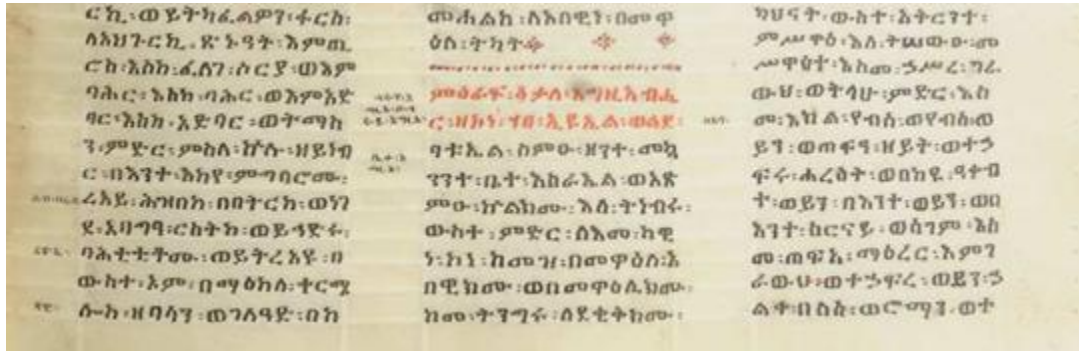 ርኪ፡ወይትካፈልዎን፡ፋርስ፡
ለአህጉርኪ፡ጽኑዓት፡እምጢ
ሮስ፡እስከ፡ፈለገ፡ሶርያ፡ወእም
ባሕር፡እስከ፡ባሕር፡ወእምአድ
ባር፡እስከ፡አድባር፡ወትማስ
ን፡ምድር፡ምስለ፡ኵሉ፡ዘይነብ
ር፡በእንተ፡እከየ፡ምግባሮሙ፡
ረአይ፡ሕዝበከ፡በበትርከ፡ወነገ
ደ፡አባግዓ፡ርስትከ፡ወይኅድሩ፡
ባሕቲቶሙ፡ወይትረአዩ፡በ
ውስተ፡ኦም፡በማዕከለ፡ቀርሜ
ሎስ፡ዘባሳን፡ወገለዓድ፡በከ
መሐልከ፡ለአበዊነ፡በመዋ
ዕለ፡ትካት
ምዕራፍ፡ቃለ፡እግዚአብሔ
ር፡ዘኮነ፡ኀበ፡ኢዩኤል፡ወልደ፡
ባቱኤል፡ስምዑ፡ዘንተ፡መኳ
ንንተ፡ቤተ፡እስራኤል፡ወአጽ
ምዑ፡ኵልክሙ፡እለ፡ትነብሩ፡
ውስተ፡ምድር፡ለእመ፡ከዊ
ነ፡ኮነ፡ከመዝ፡በመዋዕለ፡አ
በዊክሙ፡ወበመዋዕሊክሙ፡
ከመ፡ትንግሩ፡ለደቂቅክሙ፡
ካህናት፡ውስተ፡አቅርንተ፡
ምሥዋዕ፡እለ፡ትሠውዑ፡መ
ሥዋዕተ፡እስመ፡ኃሥረ፡ገራ
ውህ፡ወትላሁ፡ምድር፡እስ
መ፡እክል፡የብሰ፡ወየብሰ፡ወ
ይን፡ወጠፍዓ፡ዘይት፡ወተኃ
ፍሩ፡ሐረስት፡ወበከዩ፡ዓቀብ
ተ፡ወይን፡በእንተ፡ወይን፡ወበ
እንተ፡ስርናይ፡ወሰገም፡እስ
መ፡ጠፍአ፡ማዕረር፡እምገ
ራውህ፡ወተኃፍረ፡ወይን፡ኃ
ልቀ፡በለስ፡ወሮማን፡ወተ